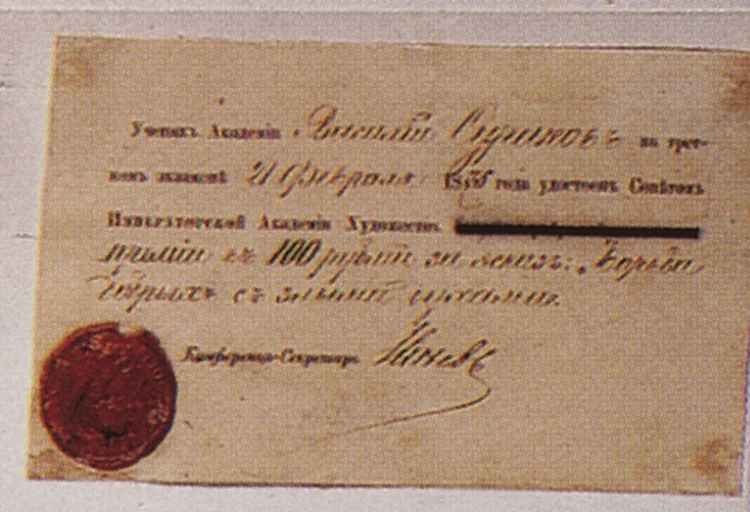 Ученикъ Академіи Василій Суриковъ на трет-
номъ экзаменѣ 21 февраля 18 года удостоенъ Совѣтомъ
Императорской Академіи Художествъ
преміи въ 100 рублей за эскизъ: „Борьба
добрыхъ съ злыми духами
Конференцъ-Секретарь Исѣевъ